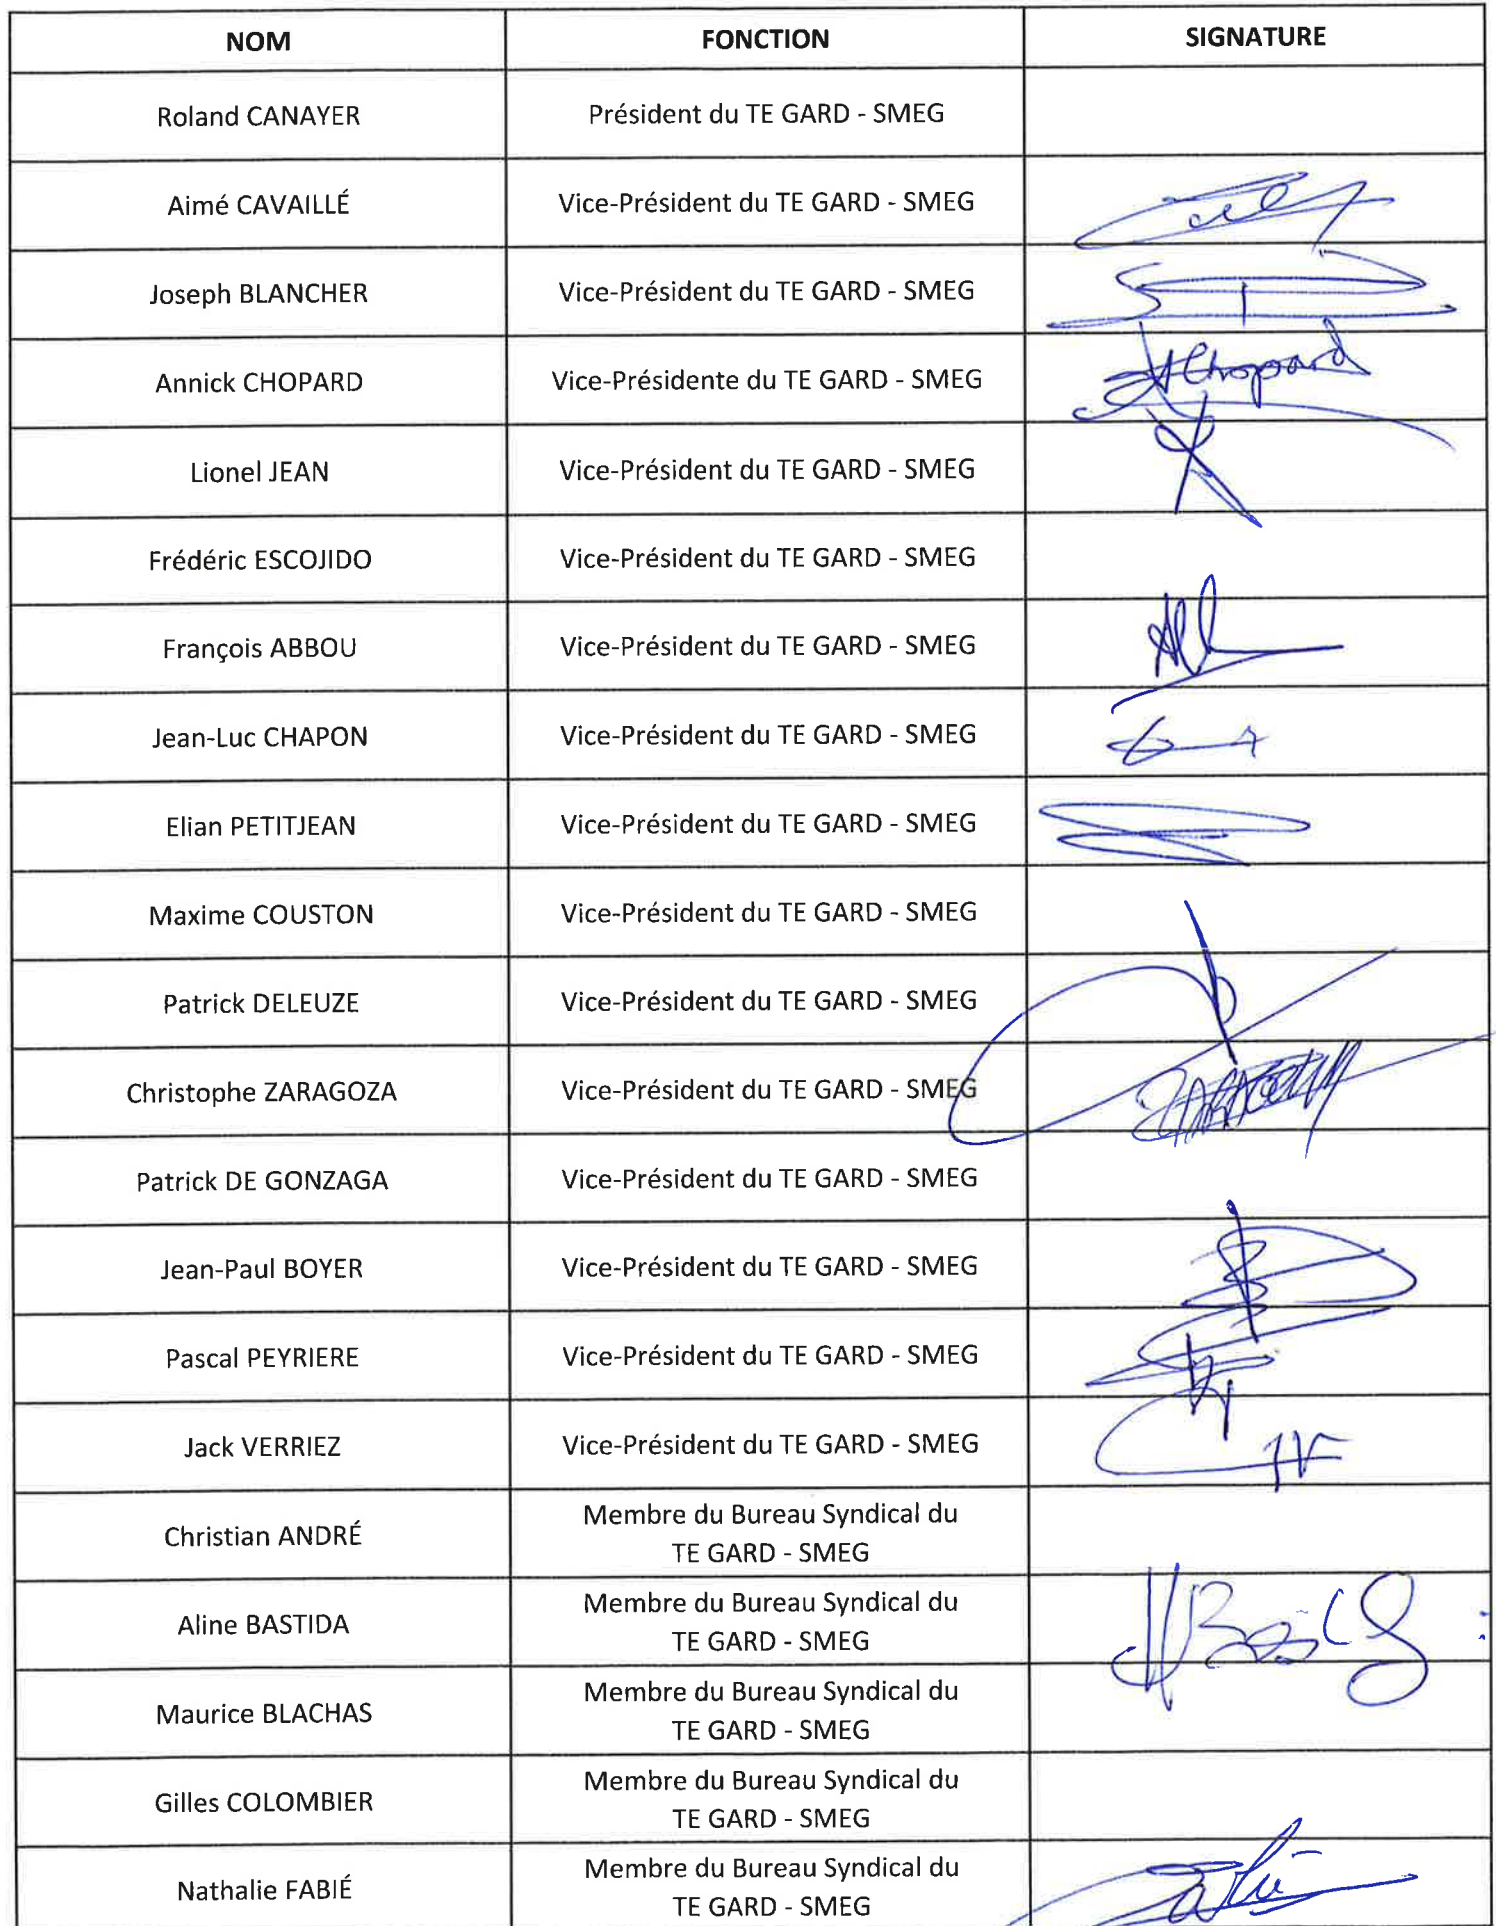 NOM FONCTION SIGNATURE
Roland CANAYER Président du TE GARD - SMEG
Aimé CAVAILLÉ Vice-Président du TE GARD - SMEG
Joseph BLANCHER Vice-Président du TE GARD - SMEG
Annick CHOPARD Vice-Présidente du TE GARD - SMEG AChopard
Lionel JEAN Vice-Président du TE GARD - SMEG
Frédéric ESCOJIDO Vice-Président du TE GARD - SMEG
François ABBOU Vice-Président du TE GARD - SMEG
Jean-Luc CHAPON Vice-Président du TE GARD - SMEG
Elian PETITJEAN Vice-Président du TE GARD - SMEG
Maxime COUSTON Vice-Président du TE GARD - SMEG
Patrick DELEUZE Vice-Président du TE GARD - SMEG
Christophe ZARAGOZA Vice-Président du TE GARD - SMEG
Patrick DE GONZAGA Vice-Président du TE GARD - SMEG
Jean-Paul BOYER Vice-Président du TE GARD - SMEG
Pascal PEYRIERE Vice-Président du TE GARD - SMEG
Jack VERRIEZ Vice-Président du TE GARD - SMEG JV
Christian ANDRÉ Membre du Bureau Syndical du
TE GARD - SMEG
Aline BASTIDA Membre du Bureau Syndical du
TE GARD - SMEG
Maurice BLACHAS Membre du Bureau Syndical du
TE GARD - SMEG
Gilles COLOMBIER Membre du Bureau Syndical du
TE GARD - SMEG
Nathalie FABIÉ Membre du Bureau Syndical du
TE GARD - SMEG